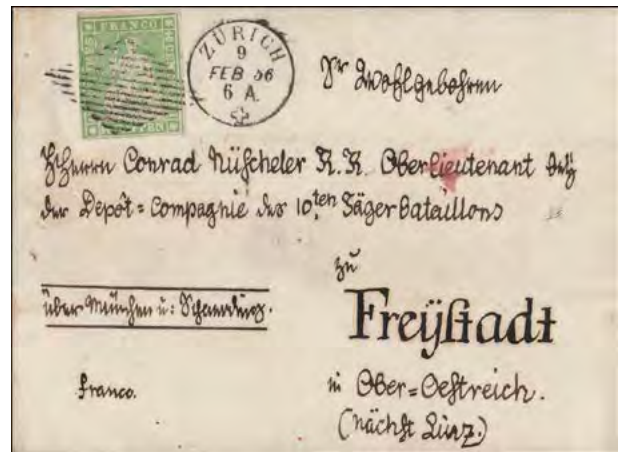 FRANCO
ZÜRICH
9
FEB 56
6 A.
Sr Wohlgebohren
Herrn Conrad Nüscheler K. K. Oberlieutenant bey
der Depôt=Compagnie des 10.ten Jäger Bataillons
zu
über München u: Schaerding.
Freÿstadt
franco.
in Ober=Oestreich.
(nächst Linz.)